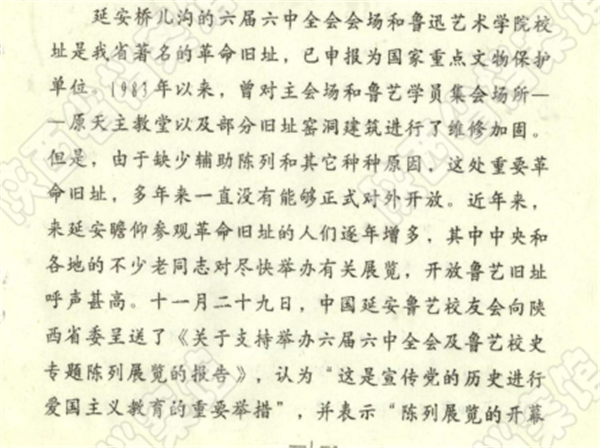 延安桥儿沟的六届六中全会会场和鲁迅艺术学院校
址是我省著名的革命旧址，已申报为国家重点文物保护
单位。1983年以来，曾对主会场和鲁艺学员集会场所—
—原天主教堂以及部分旧址窑洞建筑进行了维修加固。
但是，由于缺少辅助陈列和其它种种原因，这处重要革
命旧址，多年来一直没有能够正式对外开放。近年来，
来延安瞻仰参观革命旧址的人们逐年增多，其中中央和
各地的不少老同志对尽快举办有关展览，开放鲁艺旧址
呼声甚高。十一月二十九日，中国延安鲁艺校友会向陕
西省委呈送了《关于支持举办六届六中全会及鲁艺校史
专题陈列展览的报告》，认为“这是宣传党的历史进行
爱国主义教育的重要举措”，并表示“陈列展览的开幕
—1—